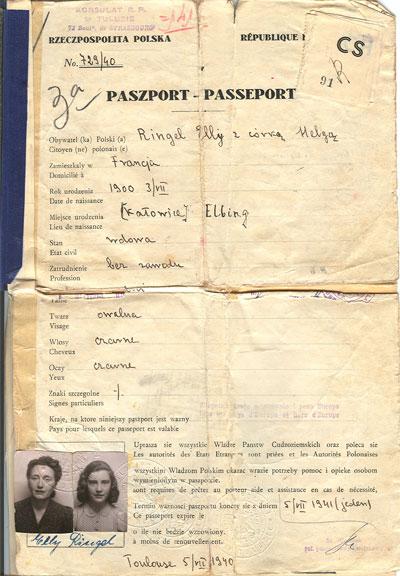 KONSULAT R. P.
w TULUZIE
RZECZPOSPOLITA POLSKA
RÉPUBLIQUE
CS
No. 729/40
91 R
za
PASZPORT - PASSEPORT
Obywatel (ka) Polski (a) Ringel Elly z córką Helgą
Citoyen (ne) polonais (e)
Zamieszkały w Francja
Domicilié à
Rok urodzenia 1900 3/VII
Date de naissance
Miejsce urodzenia [Katowice] Elbing
Lieu de naissance
Stan wdowa
Etat civil
Zatrudnienie bez zawodu
Profession
Taille
Twarz owalna
Visage
Włosy czarne
Cheveux
Oczy czarne
Yeux
Znaki szczególne -/-
Signes particuliers
Kraje, na które niniejszy paszport jest ważny
Pays pour lesquels ce passeport est valable
Uprasza się wszystkie Władze Państw Cudzoziemskich oraz poleca się
Les autorités des Etats Etrangers sont priées et les Autorités Polonaises
wszystkim Władzom Polskim okazać w razie potrzeby pomoc i opiekę osobom
wymienionym w paszporcie.
sont requises de prêter au porteur aide et assistance en cas de nécessité,
Termin ważności paszportu kończy się z dniem 5/VII 1941 (jeden)
Ce passeport expire le
o ile nie będzie wznowiony.
à moins de renouvellement.
Elly Ringel
Toulouse 5/VII/1940